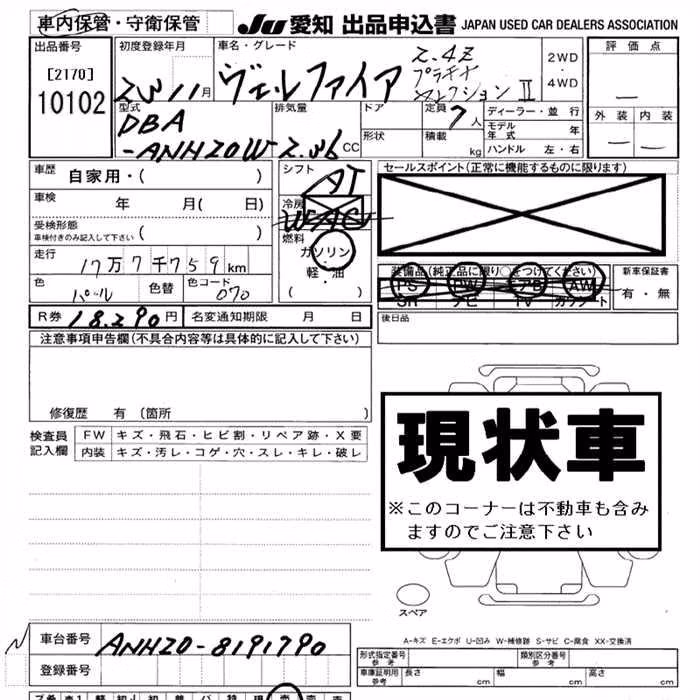 車内保管・守衛保管
JU 愛知 出品申込書 JAPAN USED CAR DEALERS ASSOCIATION
出品番号
[2170]
10102
初度登録年月
23 11月
車名・グレード
ヴェルファイア
2.4Z
プラチナ
セレクション Ⅱ
2WD
・
4WD
評価点
外装 内装
型式
DBA
-ANH20W
排気量
2.36 cc
ドア
形状
定員 7人
積載 kg
ディーラー・並行
モデル年式 年
ハンドル 左・右
車歴 自家用・( )
車検 年 月( 日)
受検形態
車検付きのみ記入して下さい
走行 17万7千759km
色 パール 色替 色コード 070
シフト AT
冷房 WAC
燃料
ガソリン
・
軽・油
( )
セールスポイント(正常に機能するものに限ります)
装備品(純正品に限り○をつけてください)
PS PW AB AW
SR ナビ TV カワシート
新車保証書
有・無
R券 18,290円 名変通知期限 月 日
後日品
注意事項申告欄(不具合内容等は具体的に記入して下さい)
修復歴 有(箇所 )
検査員記入欄
FW キズ・飛石・ヒビ割・リペア跡・X要
内装 キズ・汚レ・コゲ・穴・スレ・キレ・破レ
現状車
※このコーナーは不動車も含み
ますのでご注意下さい
スペア
A-キズ E-エクボ U-凹み W-補修跡 S-サビ C-腐食 XX-交換済
車台番号 ANH20-8191790
登録番号
型式指定番号 参考 類別区分番号 参考
車庫証明用 参考 長さ cm 幅 cm 高さ cm